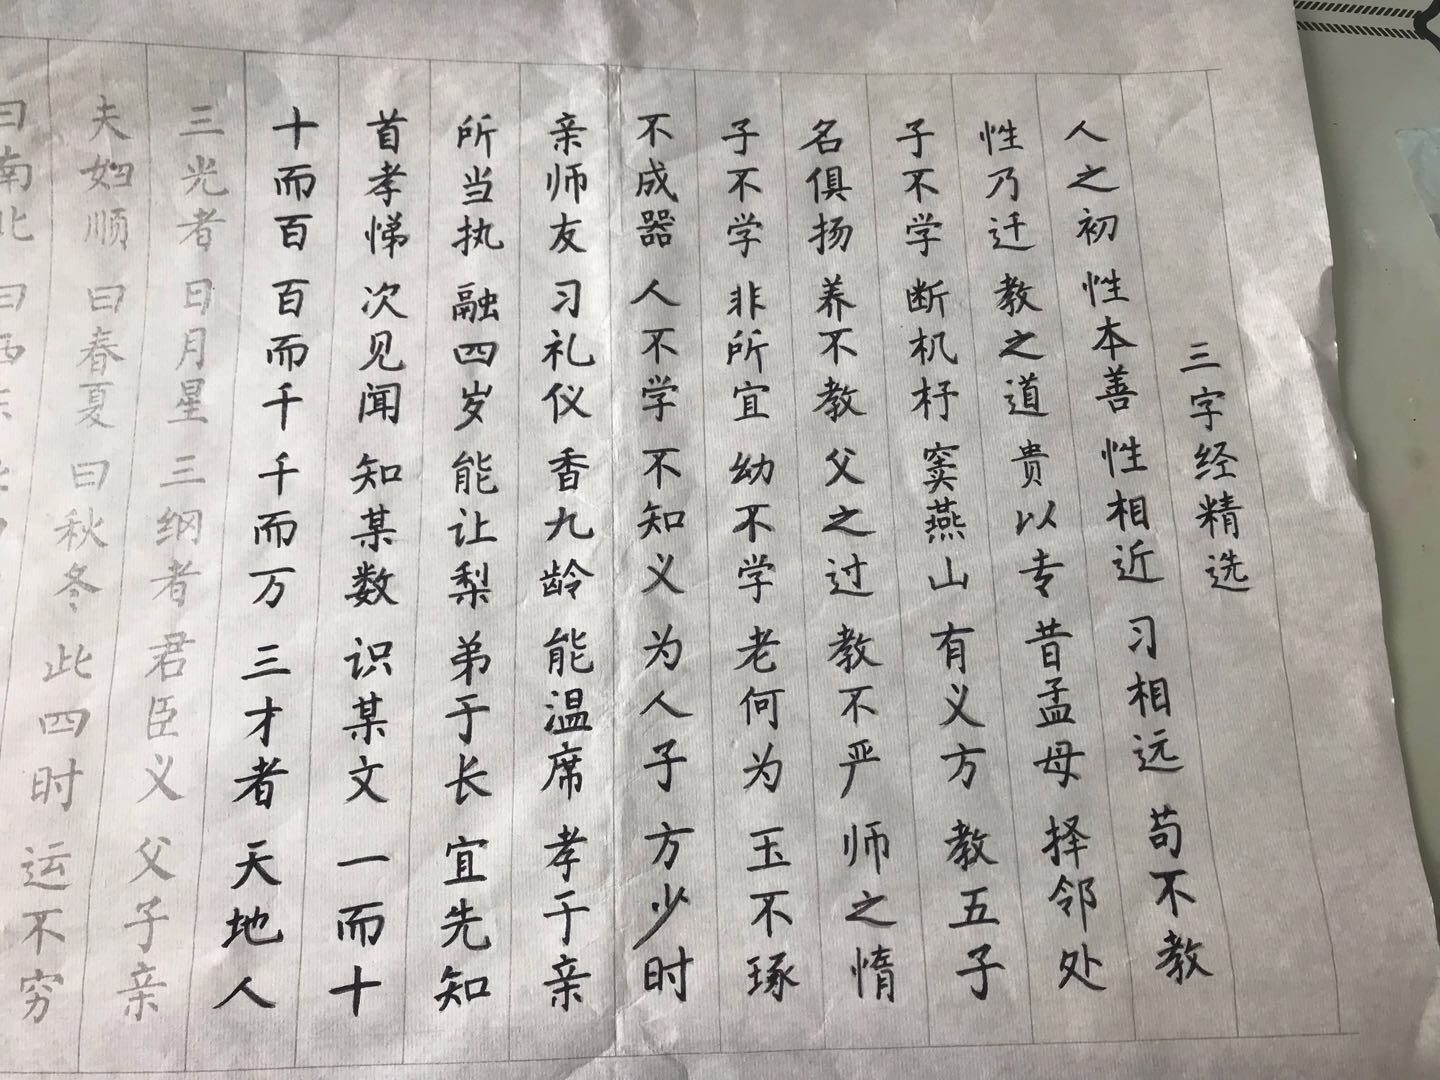 三字经精选
人之初 性本善 性相近 习相远 苟不教
性乃迁 教之道 贵以专 昔孟母 择邻处
子不学 断机杼 窦燕山 有义方 教五子
名俱扬 养不教 父之过 教不严 师之惰
子不学 非所宜 幼不学 老何为 玉不琢
不成器 人不学 不知义 为人子 方少时
亲师友 习礼仪 香九龄 能温席 孝于亲
所当执 融四岁 能让梨 弟于长 宜先知
首孝悌 次见闻 知某数 识某文 一而十
十而百 百而千 千而万 三才者 天地人
三光者 日月星 三纲者 君臣义 父子亲
夫妇顺 曰春夏 曰秋冬 此四时 运不穷
曰南北 曰西东